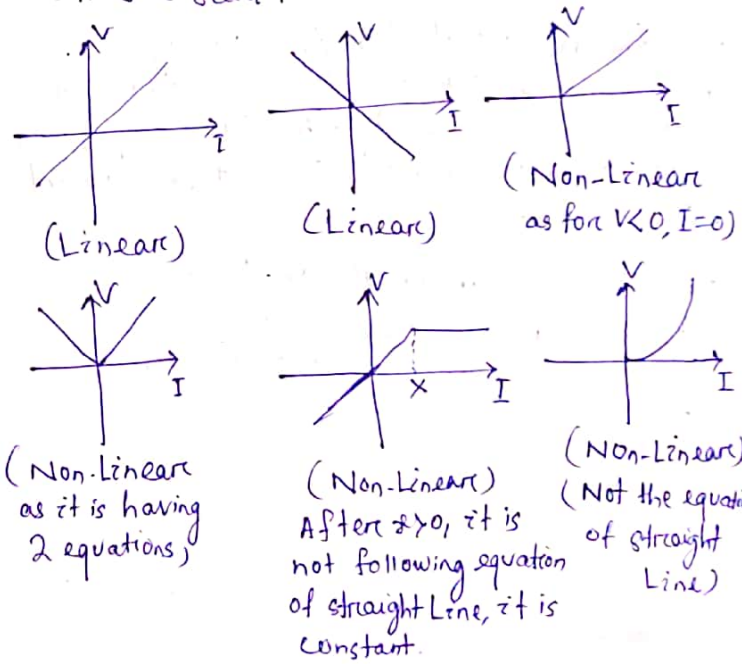 V V V
I I I
(Linear) (Linear) (Non-Linear
as for V<0, I=0)
V V V
I X I I
(Non-Linear
as it is having
2 equations)
(Non-Linear)
After x>0, it is
not following equation
of straight Line, it is
constant.
(Non-Linear)
(Not the equati
of straight
Line)